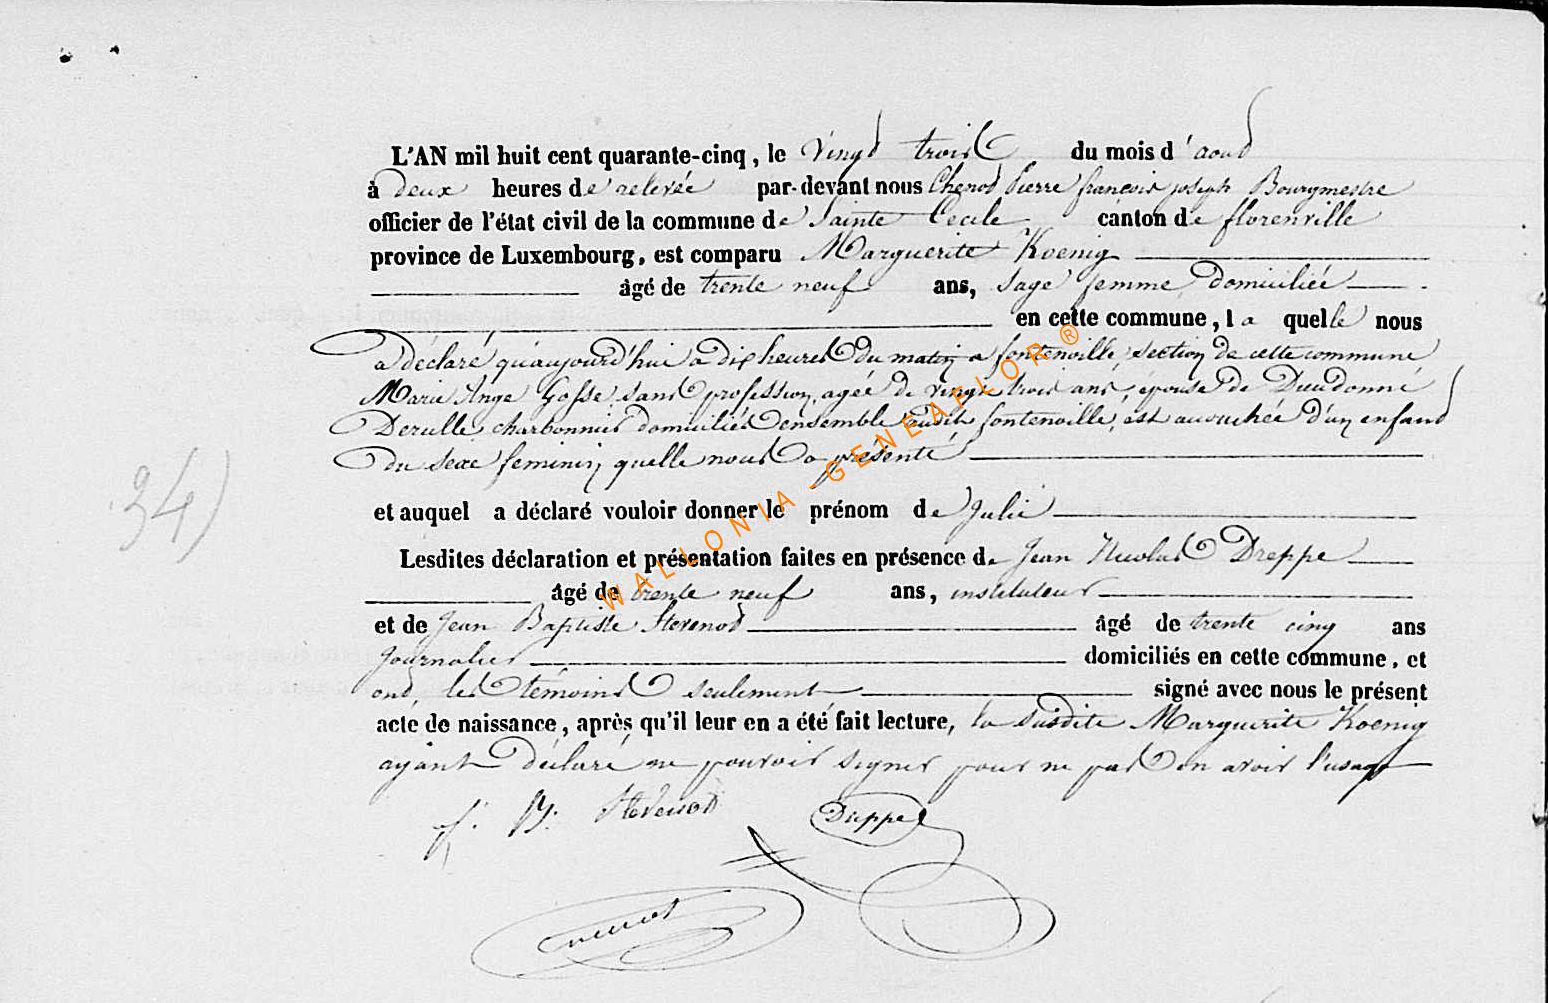 L'AN mil huit cent quarante-cinq, le vingt trois du mois d'aout
à deux heures de relevée par-devant nous Chenot Pierre françois joseph Bourgmestre
officier de l'état civil de la commune de Sainte Cecile canton de florenville
province de Luxembourg, est comparu Marguerite Koenig
âgé de trente neuf ans, sage femme domiciliée
en cette commune, la quelle nous
a déclaré qu'aujourd'hui a dix heures du matin a fontenoille section de cette commune
Marie Ange Gosse sans profession, agée de vingt trois ans, épouse de Dieudonné
Derulle charbonnier domiciliés ensemble audit fontenoille, est accouchée d'un enfant
du sexe feminin quelle nous a présenté
et auquel a déclaré vouloir donner le prénom de Julie
Lesdites déclaration et présentation faites en présence de Jean Nicolas Dreppe
âgé de trente neuf ans, instituteur
et de Jean Baptiste Stevenot âgé de trente cinq ans
Journalier domiciliés en cette commune, et
ont les témoins seulement signé avec nous le présent
acte de naissance, après qu'il leur en a été fait lecture, la susdite Marguerite Koenig
ayant déclaré ne pouvoir signer pour ne pas en avoir l'usage
J. B. Stevenot Dreppe
Chenot
34)
WALLONIA - GENEAFLOR ®